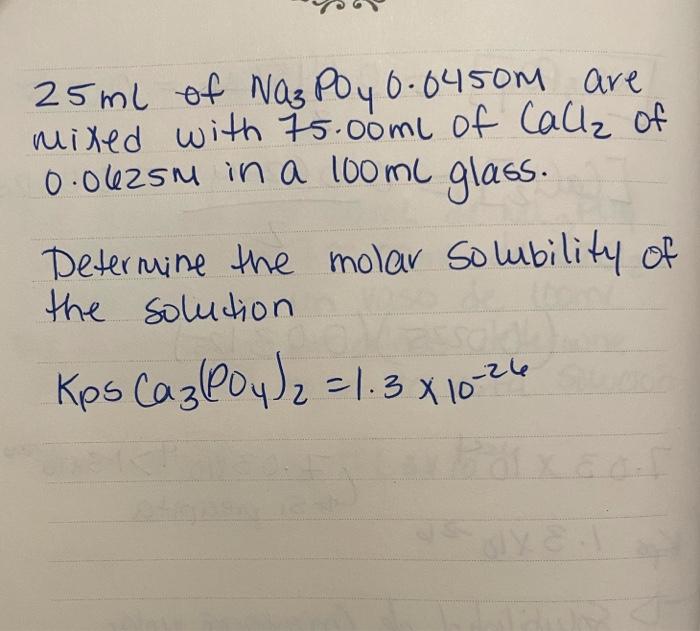 25mL of Na₃PO₄ 0.0450M are
mixed with 75.00mL of CaCl₂ of
0.0625M in a 100mL glass.
Determine the molar solubility of
the solution
Kps Ca₃(PO₄)₂ = 1.3 x 10⁻²⁶